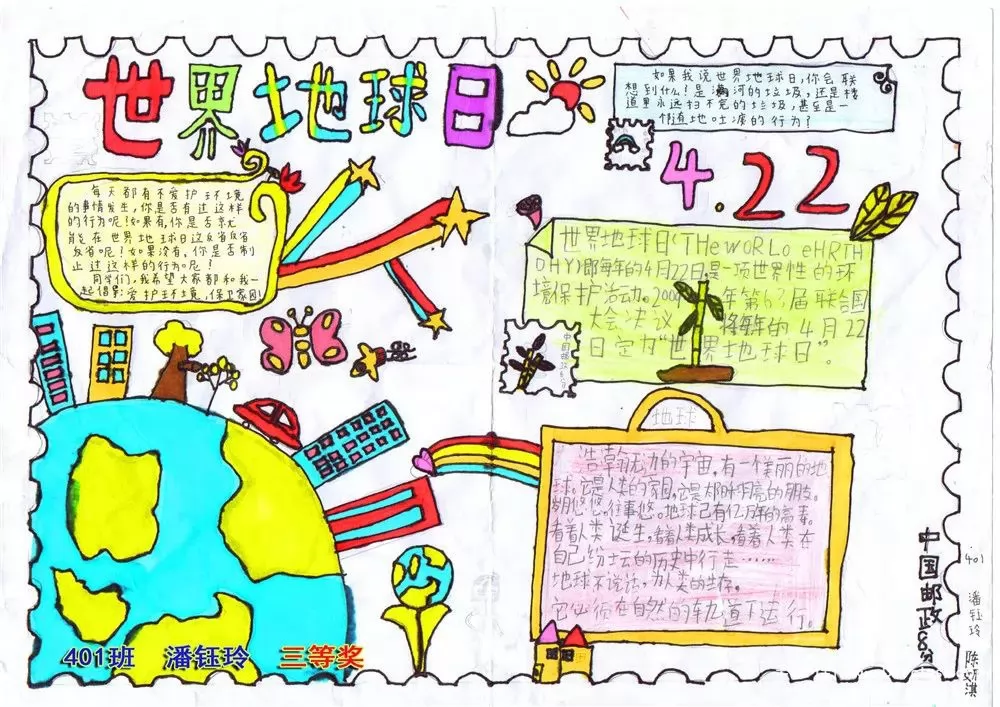 世界地球日
如果我说世界地球日,你会联
想到什么!是满河的垃圾,还是楼
道里永远扫不完的垃圾,甚至是一
随地吐痰的行为?
4.22
每天都有不爱护环境
的事情发生,你是否有过这样
的行为呢!如果有,你是否就
能在世界地球日这
反省呢!如果没有,你是否制
止过这样的行为呢!
同学们,我希望大家都和我一
起倡导爱护环境,保卫家园!
世界地球日(THe woRLo eHRTH
OHY)即每年的4月22日,是一项世界性的环
境保护活动。2009年第63届联合国
大会决议将每年的4月22
日定为“世界地球日”。
中国邮政8分
地球
浩翰无边的宇宙,有一样美丽的地
球。它是人类的家园,它是太阳和月亮的朋友。
岁月悠悠,往事悠。地球已有亿万年的高寿。
看着人类诞生,看着人类成长,看着人类在
自己纷坛的历史中行走……
地球不说话,为人类的生存。
它必须在自然的轨道下运行。
中国邮政8分
401
潘钰玲
陈
淇
401班 潘钰玲 三等奖